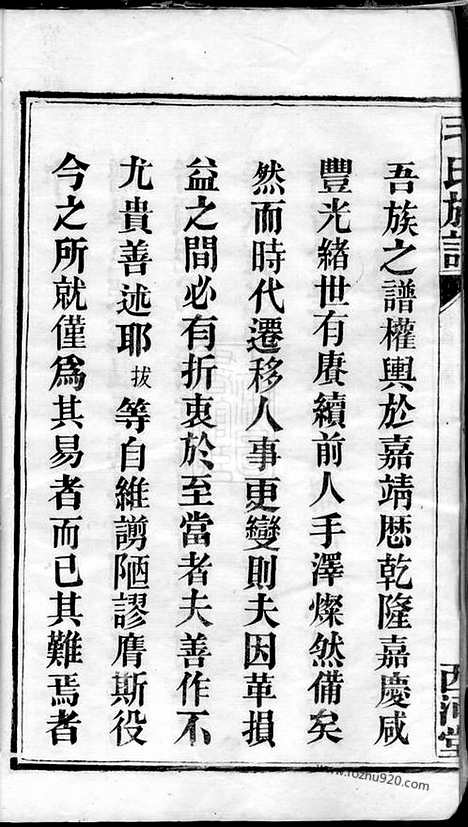 毛氏族譜
吾族之譜權輿於嘉靖歷乾隆嘉慶咸
豐光緒世有賡續前人手澤燦然備矣
然而時代遷移人事更變則夫因革損
益之間必有折衷於至當者夫善作不
尤貴善述耶拔等自維謭陋謬膺斯役
今之所就僅爲其易者而已其難焉者
西河堂
www.fozhu920.com